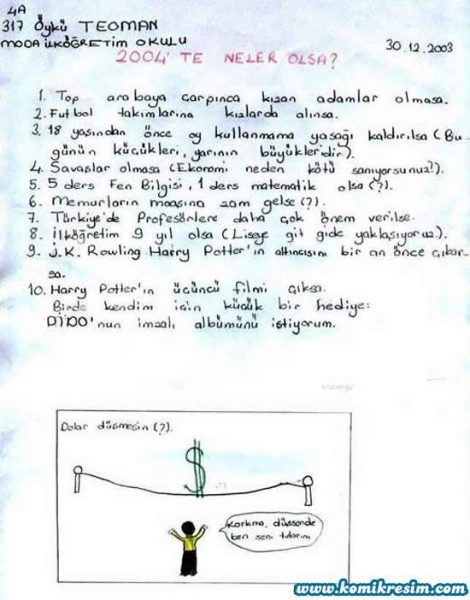 4A
317 Öykü TEOMAN
MODA İLKÖĞRETİM OKULU
30.12.2003
2004'TE NELER OLSA?
1. Top arabaya çarpınca kızan adamlar olmasa.
2. Futbol takımlarına kızlarda alınsa.
3. 18 yaşından önce oy kullanmama yasağı kaldırılsa (Bu
günün küçükleri, yarının büyükleridir.).
4. Savaşlar olmasa (Ekonomi neden kötü sanıyorsunuz!).
5. 5 ders Fen Bilgisi, 1 ders matematik olsa (?).
6. Memurların maaşına zam gelse (?).
7. Türkiye'de Profesörlere daha çok önem verilse.
8. İlköğretim 9 yıl olsa (Liseye git gide yaklaşıyoruz).
9. J.K. Rowling Harry Potter'ın altıncısını bir an önce çıkar-
sa.
10. Harry Potter'ın üçüncü filmi çıksa.
Birde kendim için küçük bir hediye:
DİDO'nun imzalı albümünü istiyorum.
Dolar düşmesin (?).
$
Korkma, düşsende
ben seni tutarım
www.komikresim.com